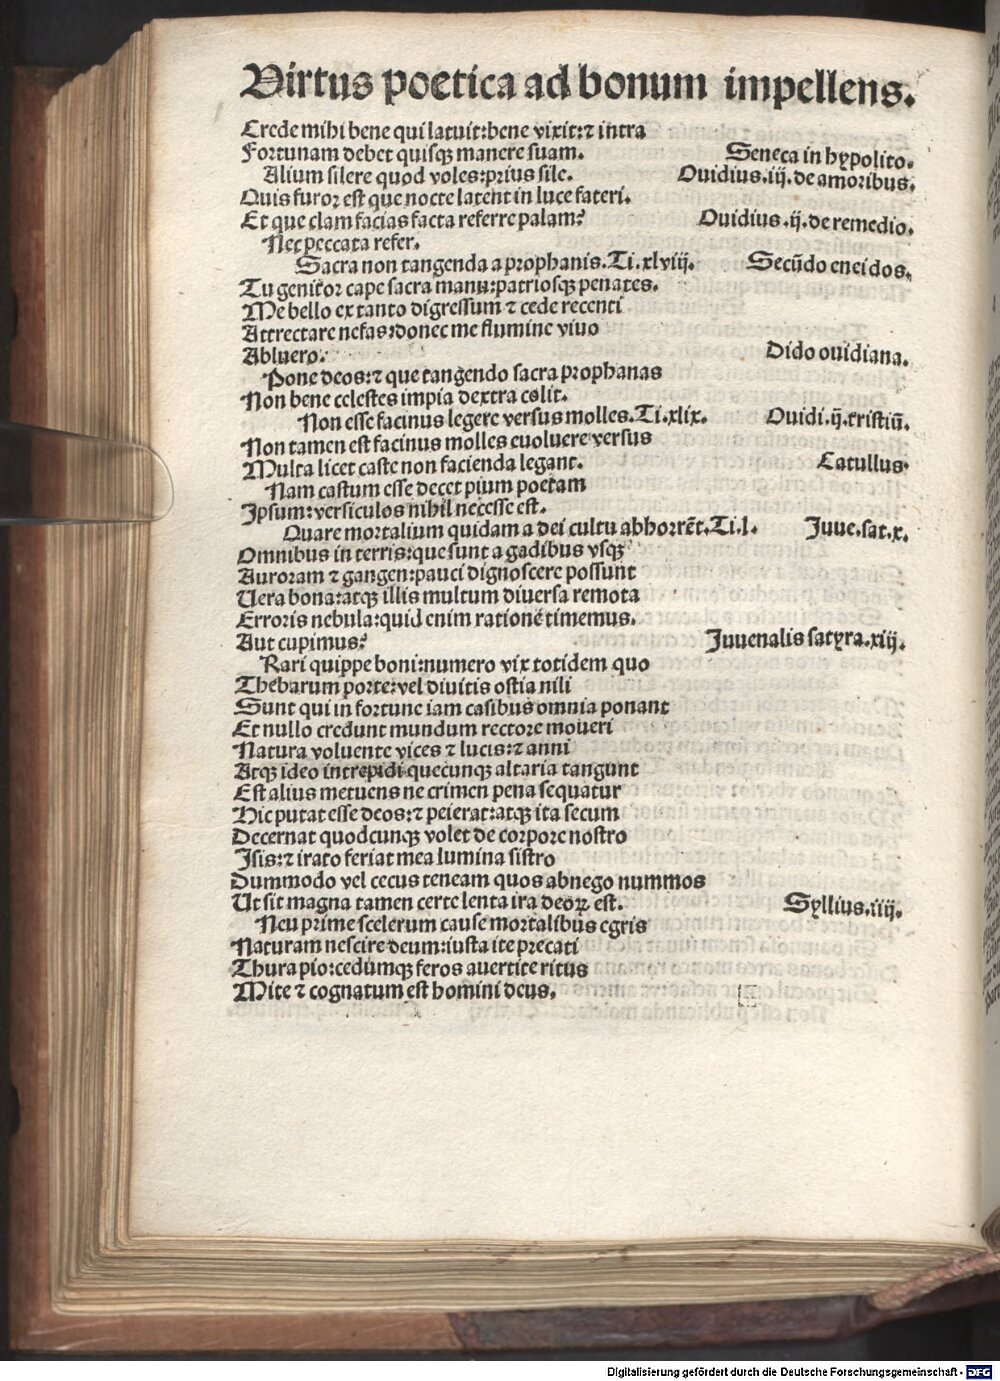 Virtus poetica ad bonum impellens.
Crede mihi bene qui latuit:bene vixit:⁊ intra
Fortunam debet quisqꝫ manere suam. Seneca in hypolito.
Alium silere quod voles:prius sile. Ouidius.iij.de amoribus.
Quis furor est que nocte latent in luce fateri.
Et que clam facias facta referre palam? Ouidius.ij.de remedio.
Nec peccata refer.
Sacra non tangenda a prophanis.Ti.xlviij. Secũdo eneidos.
Tu genitor cape sacra manu:patriosqꝫ penates.
Me bello ex tanto digressum ⁊ cede recenti
Attrectare nefas:donec me flumine viuo
Abluero. Dido ouidiana.
Pone deos:⁊ que tangendo sacra prophanas
Non bene celestes impia dextra colit.
Non esse facinus legere versus molles.Ti.xlix. Ouidi.ij.tristiũ.
Non tamen est facinus molles euoluere versus
Multa licet caste non facienda legant. Catullus.
Nam castum esse decet pium poetam
Ipsum:versiculos nihil necesse est.
Quare mortalium quidam a dei cultu abhorrēt.Ti.l. Juue.sat.x.
Omnibus in terris:que sunt a gadibus vsqꝫ
Auroram ⁊ gangen:pauci dignoscere possunt
Uera bona:atqꝫ illis multum diuersa remota
Erroris nebula:quid enim ratione timemus.
Aut cupimus? Juuenalis satyra.xiij.
Rari quippe boni:numero vix totidem quo
Thebarum porte:vel diuitis ostia nili
Sunt qui in fortune iam casibus omnia ponant
Et nullo credunt mundum rectore moueri
Natura voluente vices ⁊ lucis:⁊ anni
Atqꝫ ideo intrepidi quecunqꝫ altaria tangunt
Est alius metuens ne crimen pena sequatur
Hic putat esse deos:⁊ peierat:atqꝫ ita secum
Decernat quodcunqꝫ volet de corpore nostro
Isis:⁊ irato feriat mea lumina sistro
Dummodo vel cecus teneam quos abnego nummos
Ut sit magna tamen certe lenta ira deoꝝ est. Syllius.iiij.
Neu prime scelerum cause mortalibus egris
Naturam nescire deum:iusta ite precati
Thura pio:cedumqꝫ feros auertite ritus
Mite ⁊ cognatum est homini deus.
Digitalisierung gefördert durch die Deutsche Forschungsgemeinschaft - DFG